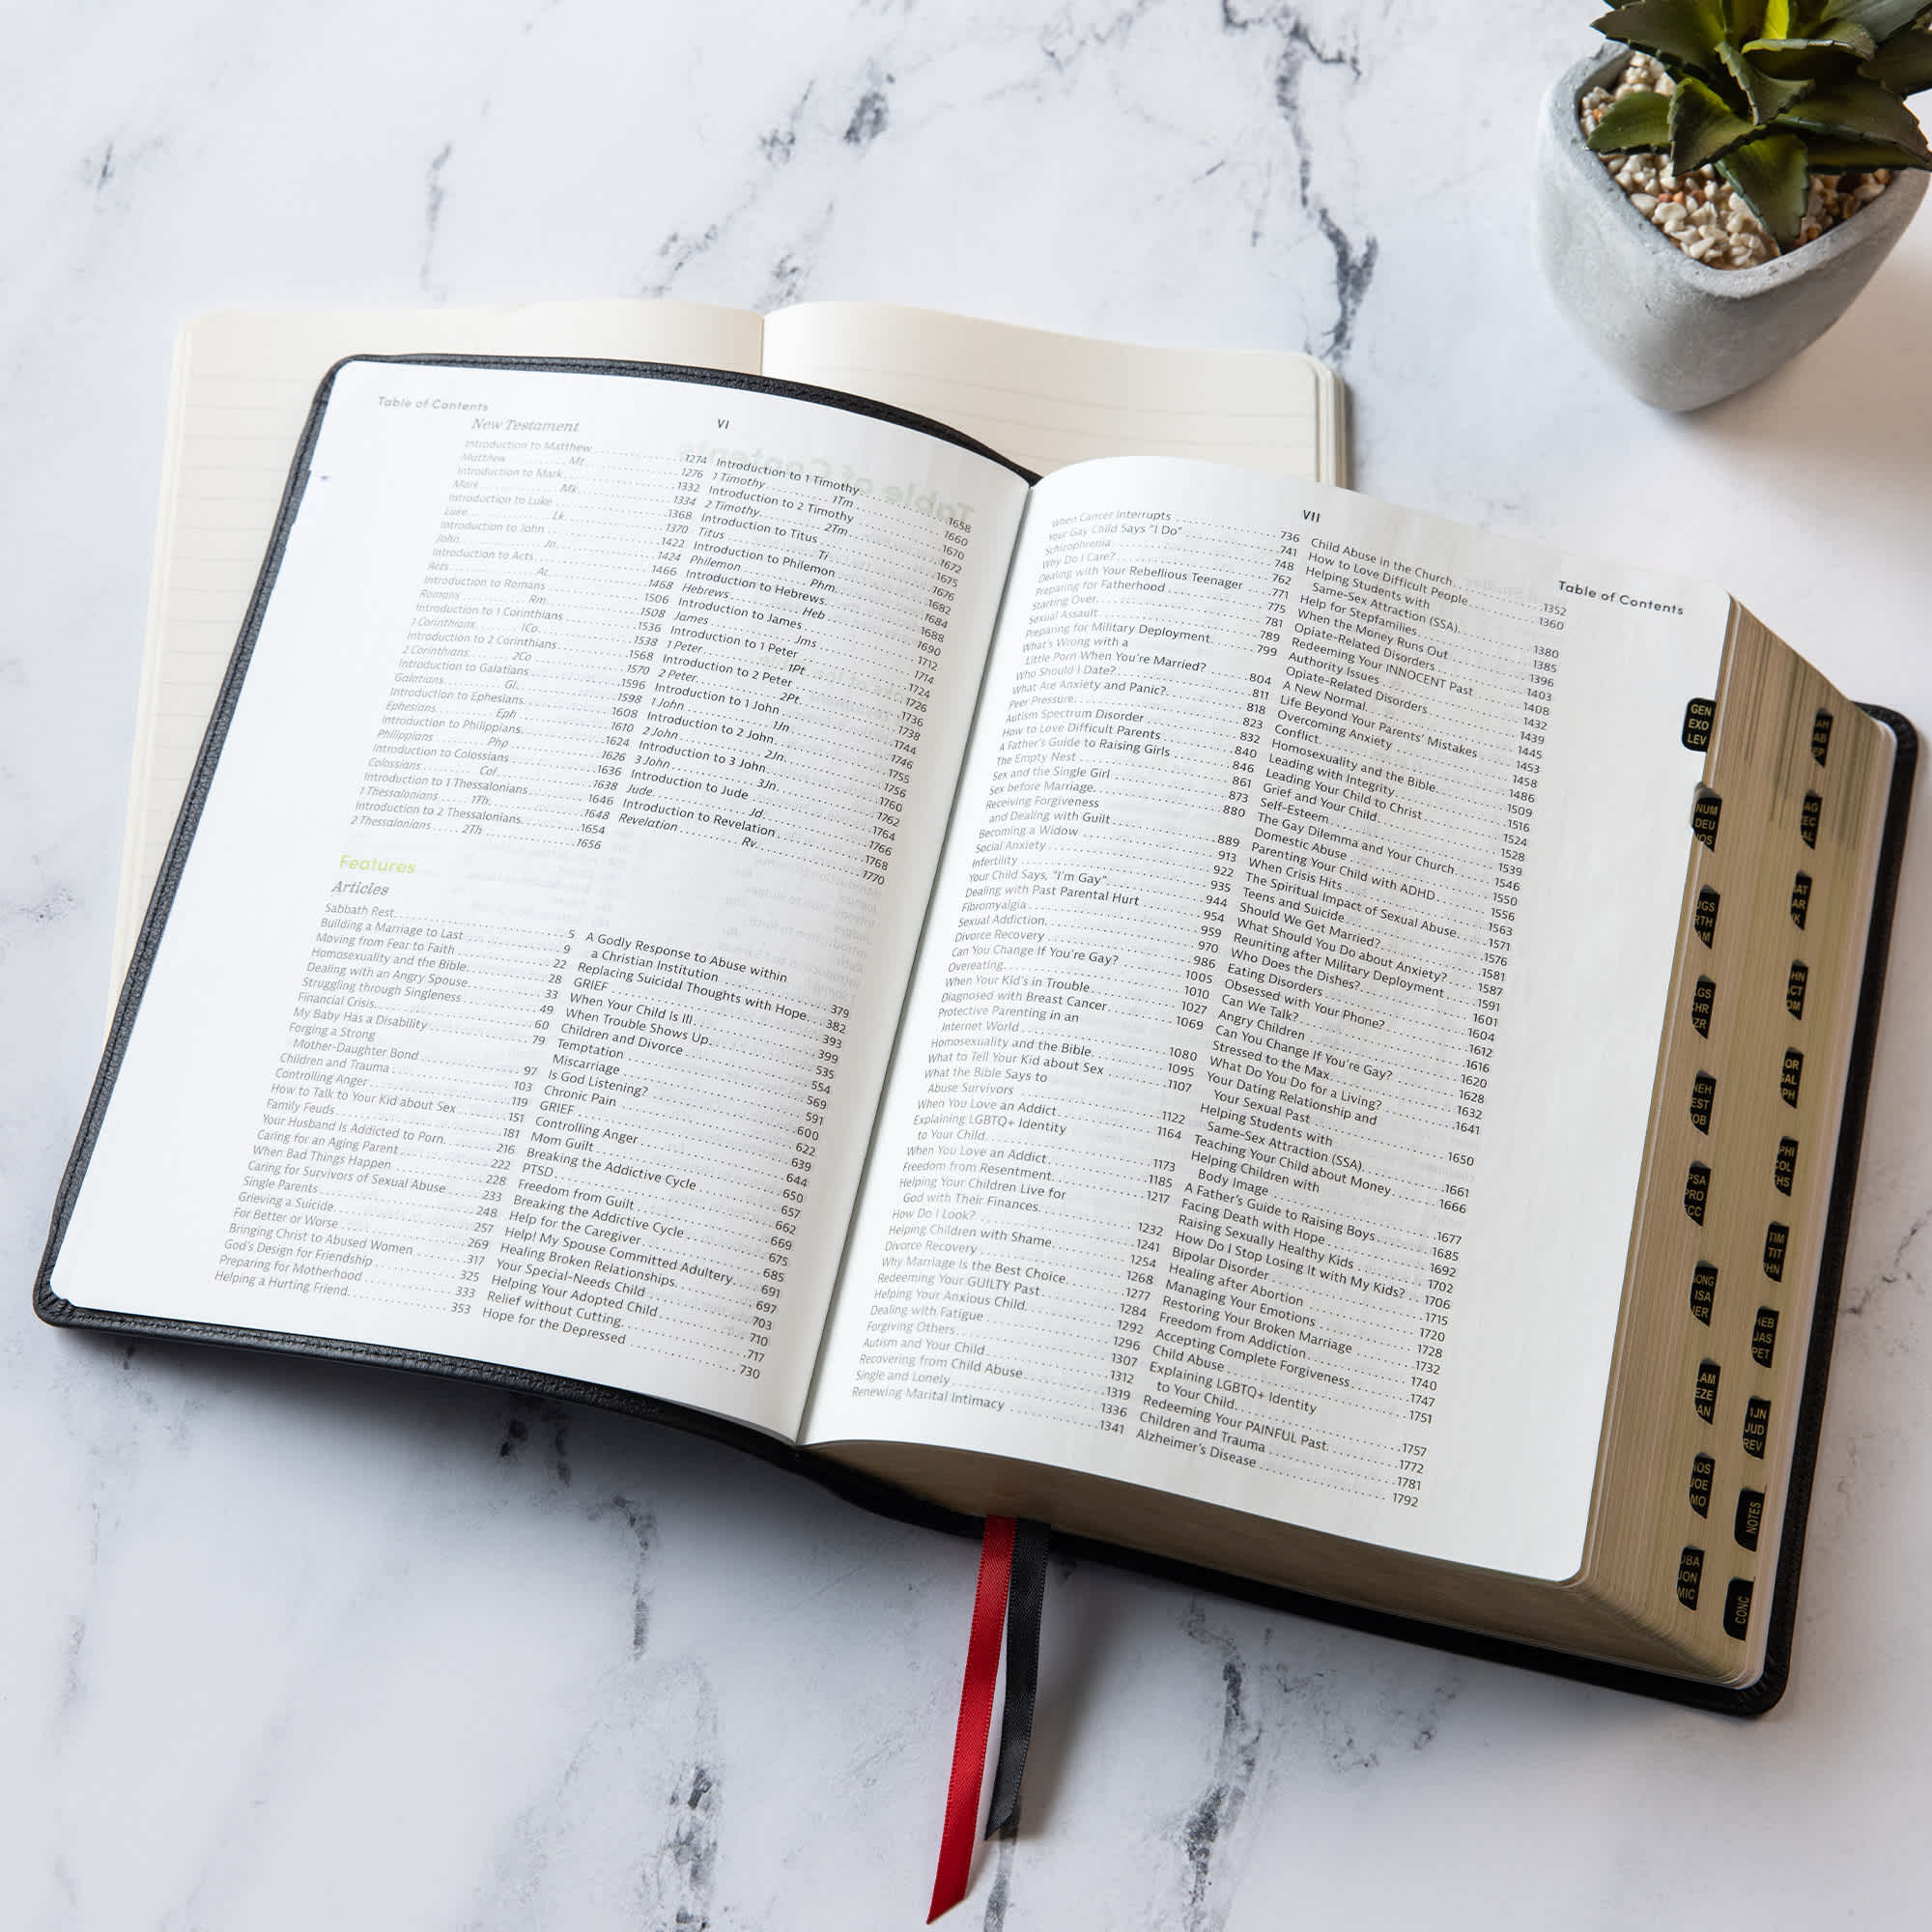 Table of Contents
VI
New Testament
Introduction to Matthew 1274
Matthew Mt 1276
Introduction to Mark 1332
Mark Mk 1334
Introduction to Luke 1368
Luke Lk 1370
Introduction to John 1422
John Jn 1424
Introduction to Acts 1466
Acts Ac 1468
Introduction to Romans 1506
Romans Rm 1508
Introduction to 1 Corinthians 1536
1 Corinthians 1Co 1538
Introduction to 2 Corinthians 1568
2 Corinthians 2Co 1570
Introduction to Galatians 1596
Galatians Gl 1598
Introduction to Ephesians 1608
Ephesians Eph 1610
Introduction to Philippians 1624
Philippians Php 1626
Introduction to Colossians 1636
Colossians Col 1638
Introduction to 1 Thessalonians 1646
1 Thessalonians 1Th 1648
Introduction to 2 Thessalonians 1654
2 Thessalonians 2Th 1656
Introduction to 1 Timothy 1658
1 Timothy 1Tm 1660
Introduction to 2 Timothy 1670
2 Timothy 2Tm 1672
Introduction to Titus 1675
Titus Ti 1676
Introduction to Philemon 1682
Philemon Phm 1684
Introduction to Hebrews 1688
Hebrews Heb 1690
Introduction to James 1712
James Jms 1714
Introduction to 1 Peter 1724
1 Peter 1Pt 1726
Introduction to 2 Peter 1736
2 Peter 2Pt 1738
Introduction to 1 John 1744
1 John 1Jn 1746
Introduction to 2 John 1755
2 John 2Jn 1756
Introduction to 3 John 1760
3 John 3Jn 1762
Introduction to Jude 1764
Jude Jd 1766
Introduction to Revelation 1768
Revelation Rv 1770
Features
Articles
Sabbath Rest 5
Building a Marriage to Last 9
Moving from Fear to Faith 22
Homosexuality and the Bible 28
Dealing with an Angry Spouse 33
Struggling through Singleness 49
Financial Crisis 60
My Baby Has a Disability 79
Forging a Strong
Mother-Daughter Bond 97
Children and Trauma 103
Controlling Anger 119
How to Talk to Your Kid about Sex 151
Family Feuds 181
Your Husband Is Addicted to Porn 216
Caring for an Aging Parent 222
When Bad Things Happen 228
Caring for Survivors of Sexual Abuse 233
Single Parents 248
Grieving a Suicide 257
For Better or Worse 269
Bringing Christ to Abused Women 317
God's Design for Friendship 325
Preparing for Motherhood 333
Helping a Hurting Friend 353
A Godly Response to Abuse within
a Christian Institution 379
Replacing Suicidal Thoughts with Hope 382
GRIEF 393
When Your Child Is Ill 399
When Trouble Shows Up 535
Children and Divorce 554
Temptation 569
Miscarriage 591
Is God Listening? 600
Chronic Pain 622
GRIEF 639
Controlling Anger 644
Mom Guilt 650
Breaking the Addictive Cycle 657
PTSD 662
Freedom from Guilt 669
Breaking the Addictive Cycle 675
Help for the Caregiver 685
Help! My Spouse Committed Adultery 691
Healing Broken Relationships 697
Your Special-Needs Child 703
Helping Your Adopted Child 710
Relief without Cutting 717
Hope for the Depressed 730
VII
Table of Contents
When Cancer Interrupts 736
Your Gay Child Says "I Do" 741
Schizophrenia 748
Why Do I Care? 762
Dealing with Your Rebellious Teenager 771
Preparing for Fatherhood 775
Starting Over 781
Sexual Assault 789
Preparing for Military Deployment 799
What's Wrong with a
Little Porn When You're Married? 804
Who Should I Date? 811
What Are Anxiety and Panic? 818
Peer Pressure 823
Autism Spectrum Disorder 832
How to Love Difficult Parents 840
A Father's Guide to Raising Girls 846
The Empty Nest 861
Sex and the Single Girl 873
Sex before Marriage 880
Receiving Forgiveness
and Dealing with Guilt 889
Becoming a Widow 913
Social Anxiety 922
Infertility 935
Your Child Says, "I'm Gay" 944
Dealing with Past Parental Hurt 954
Fibromyalgia 959
Sexual Addiction 970
Divorce Recovery 986
Can You Change If You're Gay? 1005
Overeating 1010
When Your Kid's in Trouble 1027
Diagnosed with Breast Cancer 1069
Protective Parenting in an
Internet World 1080
Homosexuality and the Bible 1095
What to Tell Your Kid about Sex 1107
What the Bible Says to
Abuse Survivors 1122
When You Love an Addict 1164
Explaining LGBTQ+ Identity
to Your Child 1173
When You Love an Addict 1185
Freedom from Resentment 1217
Helping Your Children Live for
God with Their Finances 1232
How Do I Look? 1241
Helping Children with Shame 1254
Divorce Recovery 1268
Why Marriage Is the Best Choice 1277
Redeeming Your GUILTY Past 1284
Helping Your Anxious Child 1292
Dealing with Fatigue 1296
Forgiving Others 1307
Autism and Your Child 1312
Recovering from Child Abuse 1319
Single and Lonely 1336
Renewing Marital Intimacy 1341
Child Abuse in the Church 1352
How to Love Difficult People 1360
Helping Students with
Same-Sex Attraction (SSA) 1380
Help for Stepfamilies 1385
When the Money Runs Out 1396
Opiate-Related Disorders 1403
Redeeming Your INNOCENT Past 1408
Authority Issues 1432
Opiate-Related Disorders 1439
A New Normal 1445
Life Beyond Your Parents' Mistakes 1453
Overcoming Anxiety 1458
Conflict 1486
Homosexuality and the Bible 1509
Leading with Integrity 1516
Leading Your Child to Christ 1524
Grief and Your Child 1528
Self-Esteem 1539
The Gay Dilemma and Your Church 1546
Domestic Abuse 1550
Parenting Your Child with ADHD 1556
When Crisis Hits 1563
The Spiritual Impact of Sexual Abuse 1571
Teens and Suicide 1576
Should We Get Married? 1581
What Should You Do about Anxiety? 1587
Reuniting after Military Deployment 1591
Who Does the Dishes? 1601
Eating Disorders 1604
Obsessed with Your Phone? 1612
Can We Talk? 1616
Angry Children 1620
Can You Change If You're Gay? 1628
Stressed to the Max 1632
What Do You Do for a Living? 1641
Your Dating Relationship and
Your Sexual Past 1650
Helping Students with
Same-Sex Attraction (SSA) 1661
Teaching Your Child about Money 1666
Helping Children with
Body Image 1677
A Father's Guide to Raising Boys 1685
Facing Death with Hope 1692
Raising Sexually Healthy Kids 1702
How Do I Stop Losing It with My Kids? 1706
Bipolar Disorder 1715
Healing after Abortion 1720
Managing Your Emotions 1728
Restoring Your Broken Marriage 1732
Freedom from Addiction 1740
Accepting Complete Forgiveness 1747
Child Abuse 1751
Explaining LGBTQ+ Identity
to Your Child 1757
Redeeming Your PAINFUL Past 1772
Children and Trauma 1781
Alzheimer's Disease 1792
GEN
EXO
LEV
NUM
DEU
TIM
TIT
1JN
JUD
REV
NOTES
CONC